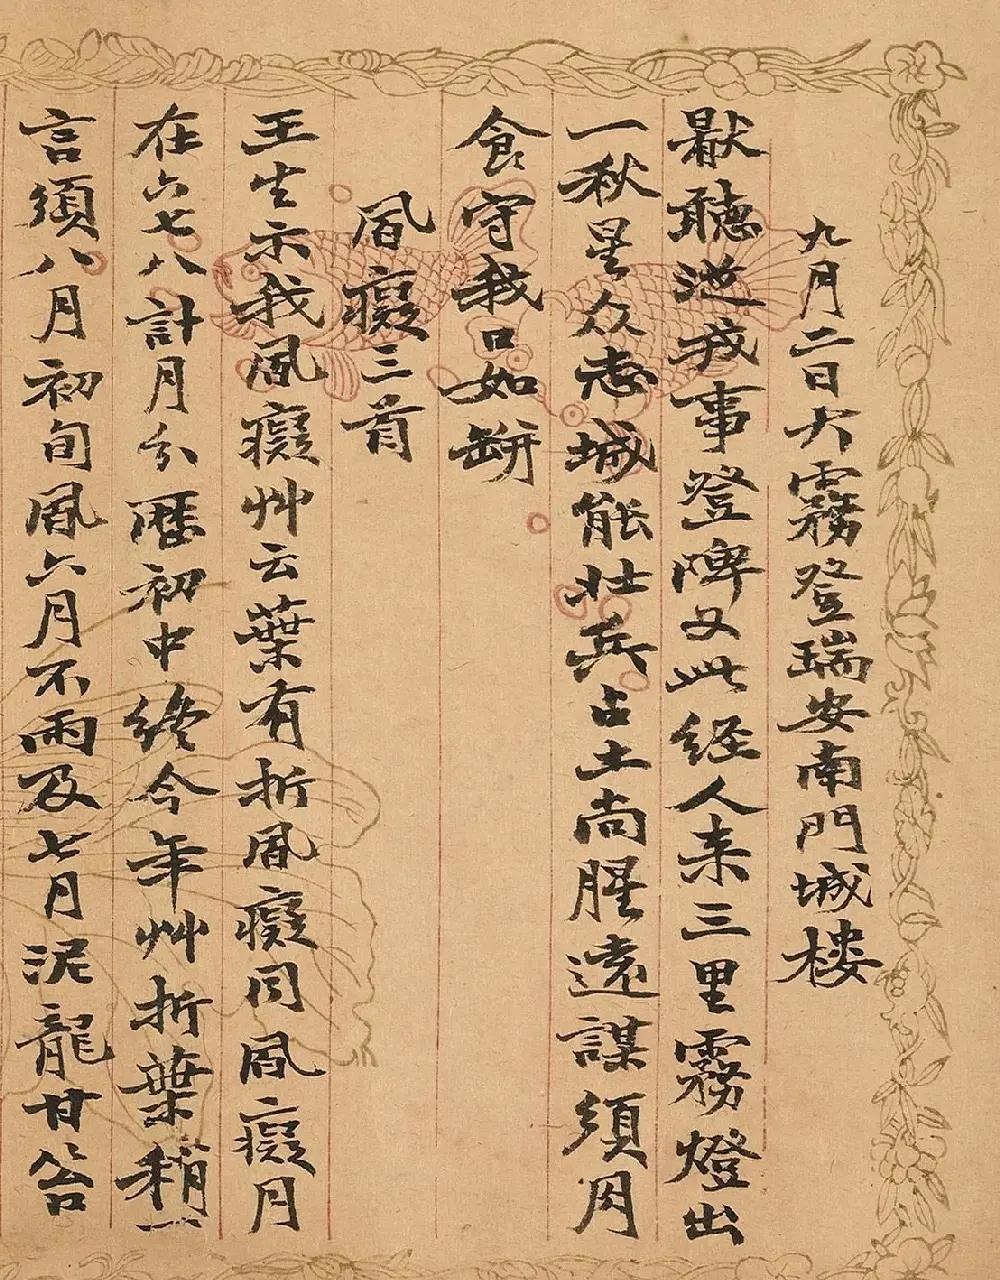 九月二日大霧登瑞安南門城楼
厭聽談我事登陴又此経人来三里霧燈出
一秋星众志城能壮兵占土尚腥遠謀須肉
食守我口如缾
風癡三首
王生示我風癡艸云葉有折風癡同風癡月
在六七八計月分歴初中終今年艸折葉稍一
言須八月初旬風六月不雨及七月泥龍甘咎